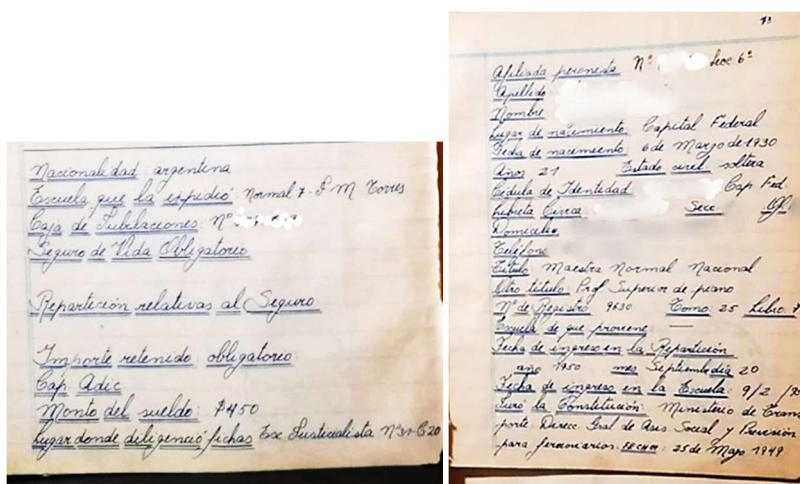 Nacionalidad: argentina
Escuela que la expidió Normal 7. J. M. Torres
Caja de Jubilaciones: Nº
Seguro de Vida Obligatorio
Repartición relativas al Seguro
Importe retenido obligatorio:
Cap. Adic
Monto del sueldo: $450
Lugar donde diligenció fichas Esc Justicialista Nº31-C20
Afiliada peronista Nº 6ª
Apellido
Nombre
Lugar de nacimiento Capital Federal
Fecha de nacimiento 6 de Marzo de 1930
Años 21 Estado civil soltera
Cédula de Identidad Cap Fed.
Libreta Cívica Secc. Of.
Domicilio
Teléfono
Título Maestra Normal Nacional
Otro título Prof Superior de piano
Nº de Registro 9630 Tomo 25 Libro 7
Escuela de que proviene —
Fecha de ingreso en la Repartición
año 1950 mes Septiembre día 20
Fecha de ingreso en la Escuela: 9/2
Juró la Constitución: Ministerio de Trans
porte. Direcc. Gral de Asis. Social y Previsión
para ferroviarios. FECHA: 25 de Mayo 1949